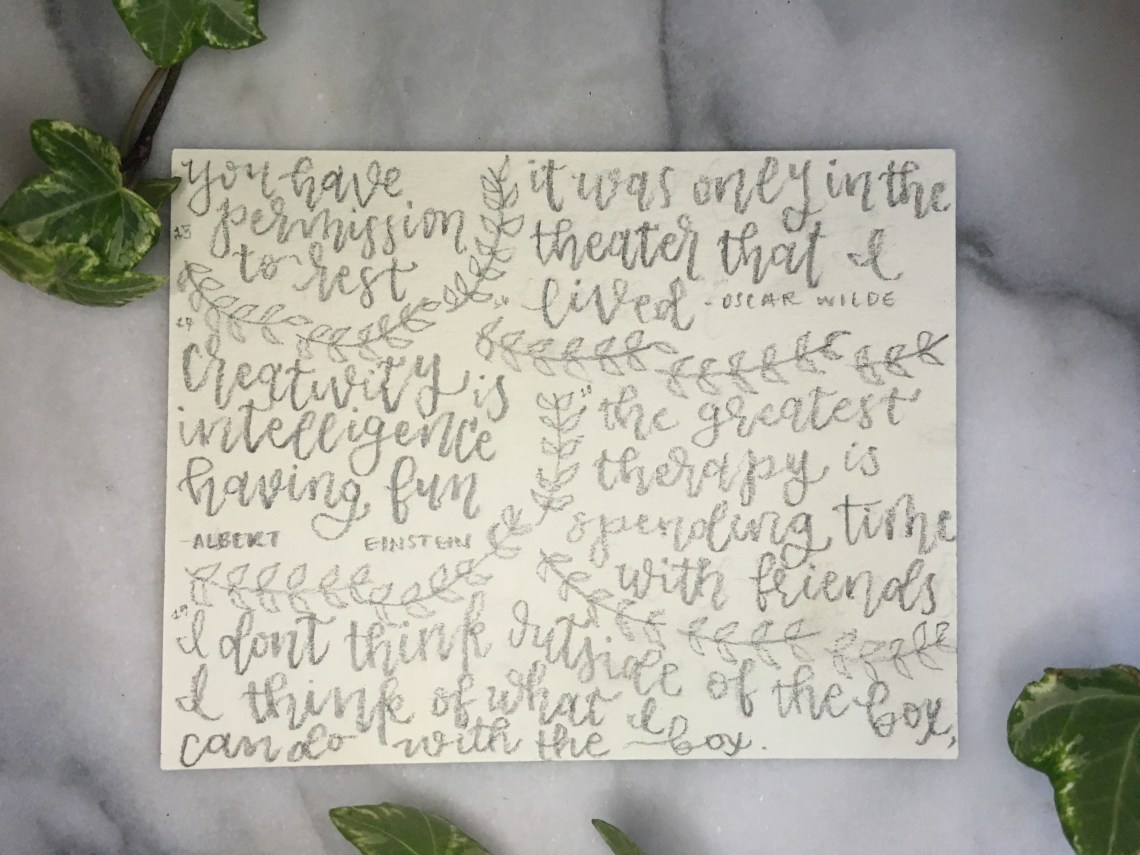 you have
permission
to rest
it was only in the
theater that I
lived - OSCAR WILDE
Creativity is
intelligence
having fun
-ALBERT EINSTEIN
the greatest
therapy is
spending time
with friends
I dont think outside of the box,
I think of what I
can do with the box.